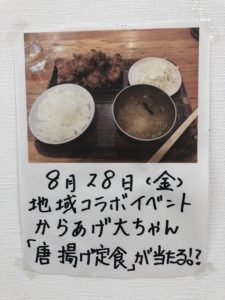 8月28日(金)
地域コラボイベント
からあげ大ちゃん
「唐揚げ定食」が当たる!?